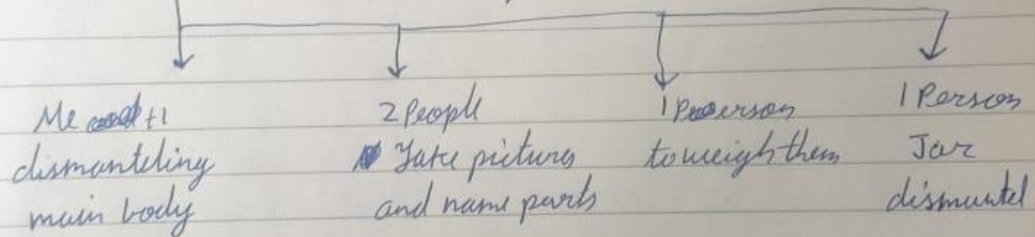 Me +1
dismanteling
main body
2 People
Take pictures
and name parts
1 Person
to weigh them
1 Person
Jar
dismantel